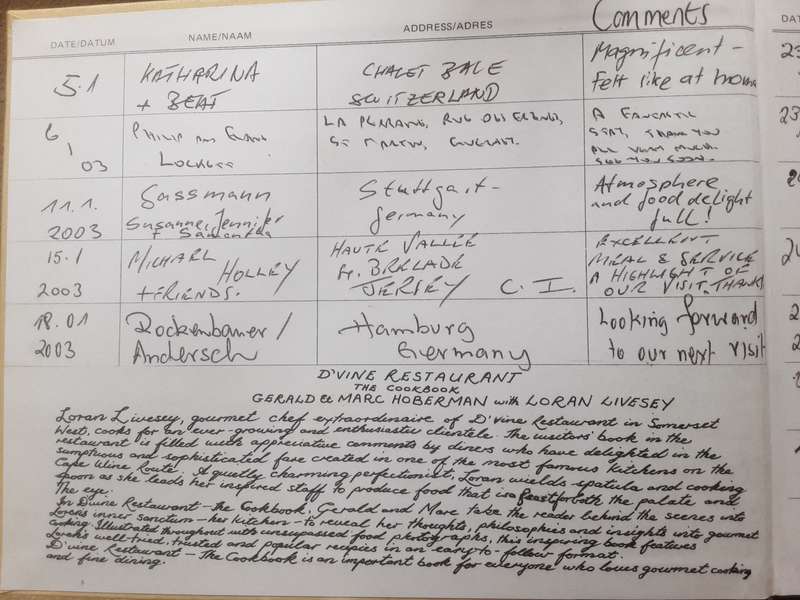 Comments
DATE/DATUM NAME/NAAM ADDRESS/ADRES
5.1 KATHARINA + BEAT CHALET BALE SWITZERLAND Magnificent - felt like at home
6/1/03 PHILIP LA RUE DES ST MARTIN, A FANTASTIC THANK YOU ALL VERY MUCH SEE YOU SOON.
11.1.2003 Sassmann Susanne, Jennifer + Samantha Stuttgart - Germany Atmosphere and food delight full!
15.1 2003 MICHAEL HOLLEY + FRIENDS. HAUTE VALLÉE St. BRELADE JERSEY C.I. EXCELLENT MEAL & SERVICE A HIGHLIGHT OF OUR VISIT. THANKS
18.01 2003 Rockenbauer / Andersch Hamburg Germany Looking forward to our next visit
D'VINE RESTAURANT
THE COOKBOOK
GERALD & MARC HOBERMAN with LORAN LIVESEY
Loran Livesey, gourmet chef extraordinaire of D'vine Restaurant in Somerset
West, cooks for an ever-growing and enthusiastic clientele. The visitors' book in the
restaurant is filled with appreciative comments by diners who have delighted in the
sumptuous and sophisticated fare created in one of the most famous kitchens on the
Cape Wine Route. A quietly charming perfectionist, Loran wields spatula and cooking
spoon as she leads her inspired staff to produce food that is a feast for both the palate and
The eye.
In D'vine Restaurant - The Cookbook, Gerald and Marc take the reader behind the scenes into
Loran's inner sanctum - her kitchen - to reveal her thoughts, philosophies and insights into gourmet
cooking. Illustrated throughout with unsurpassed food photographs, this inspiring book features
Loran's well-tried, trusted and popular recipes in an easy-to-follow format.
D'vine Restaurant - The Cookbook is an important book for everyone who loves gourmet cooking
and fine dining.